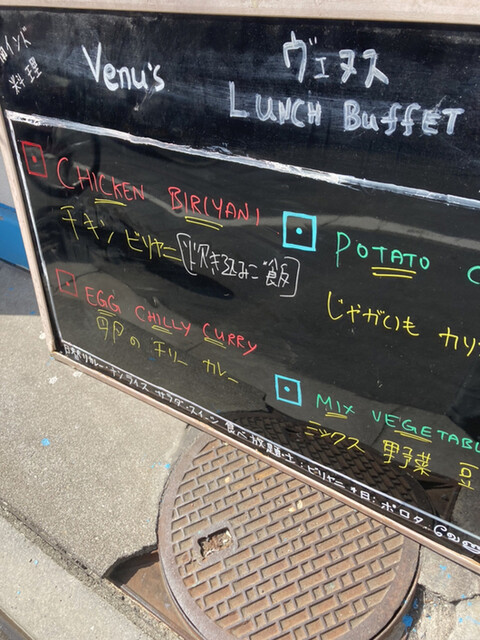 南インド
料理
Venu's
ヴェヌス
LUNCH BuffET
CHICKEN BIRIYANI
チキン ビリヤニ (炊き込みご飯)
EGG CHILLY CURRY
卵の チリー カレー
POTATO C
じゃがいも カリ
MIX VEGETABL
ミックス 野菜 豆
カレー・ナン・ライス サラダ・スイーツ 食べ放題・土:ビリヤニ・日:ポロタ